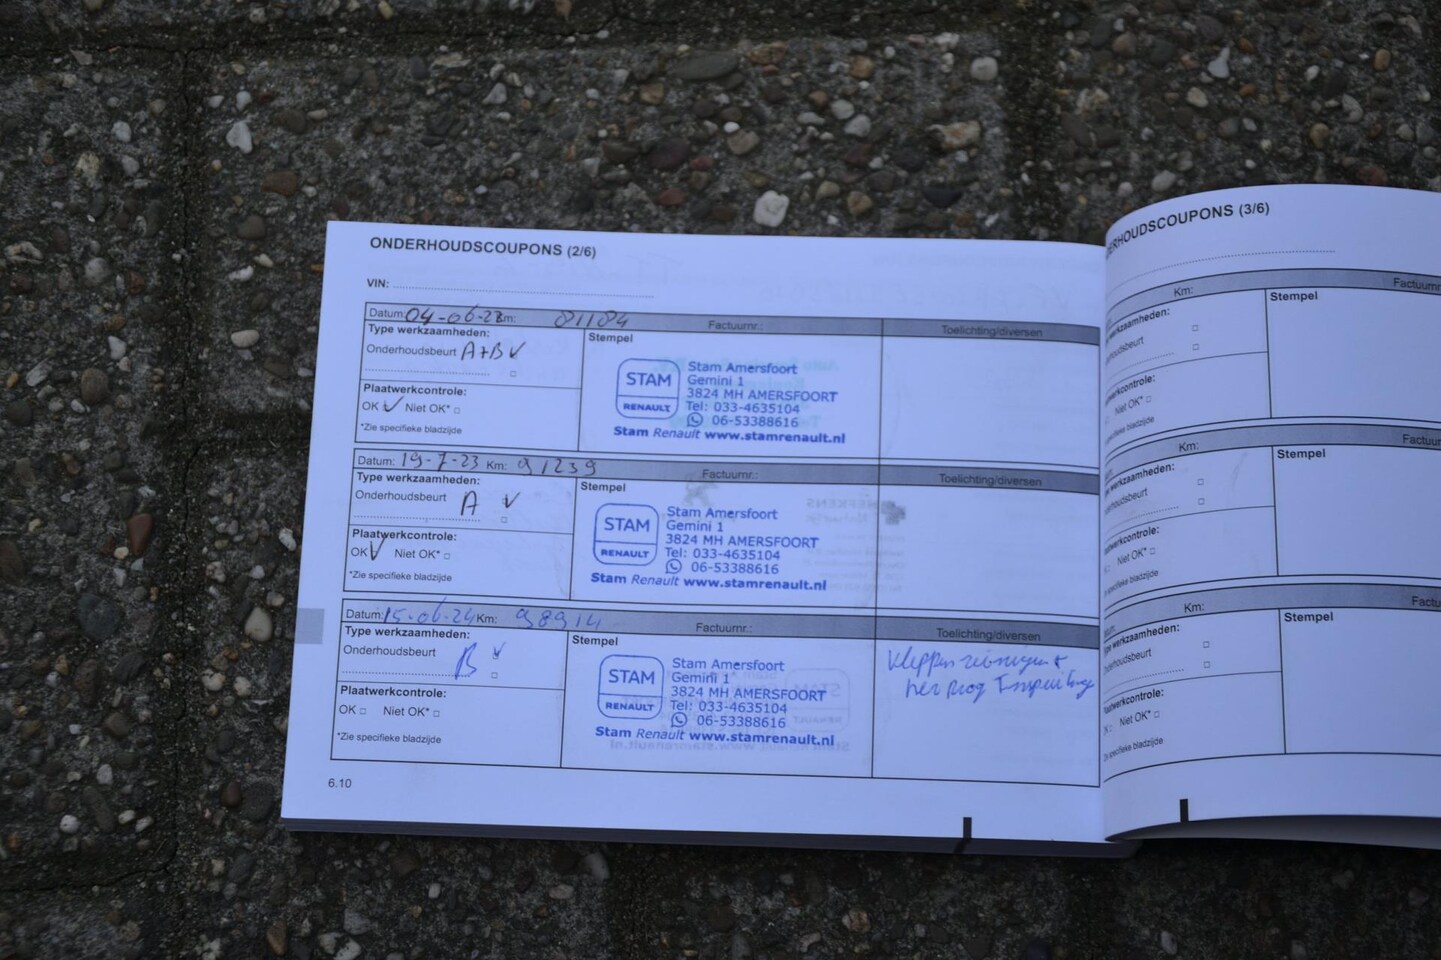 ONDERHOUDSCOUPONS (2/6)
VIN:
Datum: 04-06-22 Km: 81184 Factuurnr.: Toelichting/diversen
Type werkzaamheden:
Onderhoudsbeurt A+B ✓
Plaatwerkcontrole:
OK ✓ Niet OK* □
*Zie specifieke bladzijde
Stempel
STAM
RENAULT
Stam Amersfoort
Gemini 1
3824 MH AMERSFOORT
Tel: 033-4635104
06-53388616
Stam Renault www.stamrenault.nl
Datum: 19-7-23 Km: 91239 Factuurnr.: Toelichting/diversen
Type werkzaamheden:
Onderhoudsbeurt A ✓
Plaatwerkcontrole:
OK ✓ Niet OK* □
*Zie specifieke bladzijde
Stempel
STAM
RENAULT
Stam Amersfoort
Gemini 1
3824 MH AMERSFOORT
Tel: 033-4635104
06-53388616
Stam Renault www.stamrenault.nl
Datum: 15-06-24 Km: 98914 Factuurnr.: Toelichting/diversen
Type werkzaamheden:
Onderhoudsbeurt B ✓
Plaatwerkcontrole:
OK □ Niet OK* □
*Zie specifieke bladzijde
Stempel
STAM
RENAULT
Stam Amersfoort
Gemini 1
3824 MH AMERSFOORT
Tel: 033-4635104
06-53388616
Stam Renault www.stamrenault.nl
kleppen
her prog
6.10
ERHOUDSCOUPONS (3/6)
Km: Factuurnr
werkzaamheden:
houdsbeurt
Plaatwerkcontrole:
Niet OK* □
specifieke bladzijde
Stempel
Km: Factuurr
werkzaamheden:
houdsbeurt
Plaatwerkcontrole:
Niet OK* □
specifieke bladzijde
Stempel
Km: Factu
Type werkzaamheden:
Onderhoudsbeurt
Plaatwerkcontrole:
Niet OK* □
specifieke bladzijde
Stempel